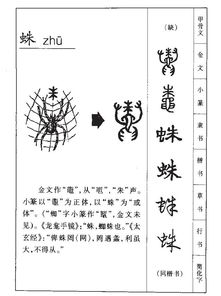 蛛 zhū
金文作“鼄”,从“黾”,“朱”声。
小篆以“鼄”为正体,以“蛛”为“或
体”。(“蜘”字小篆作“
”,金文未
见)。《龙龛手镜》:“蛛,蜘蛛也。”《太
玄经》:“俾蛛罔(网),罔遇螽,利虽
大,不得从。”
(缺)
蛛
蛛
蛛
蛛
(同楷书)
甲骨文
金文
小篆
隶书
楷书
草书
行书
简化字